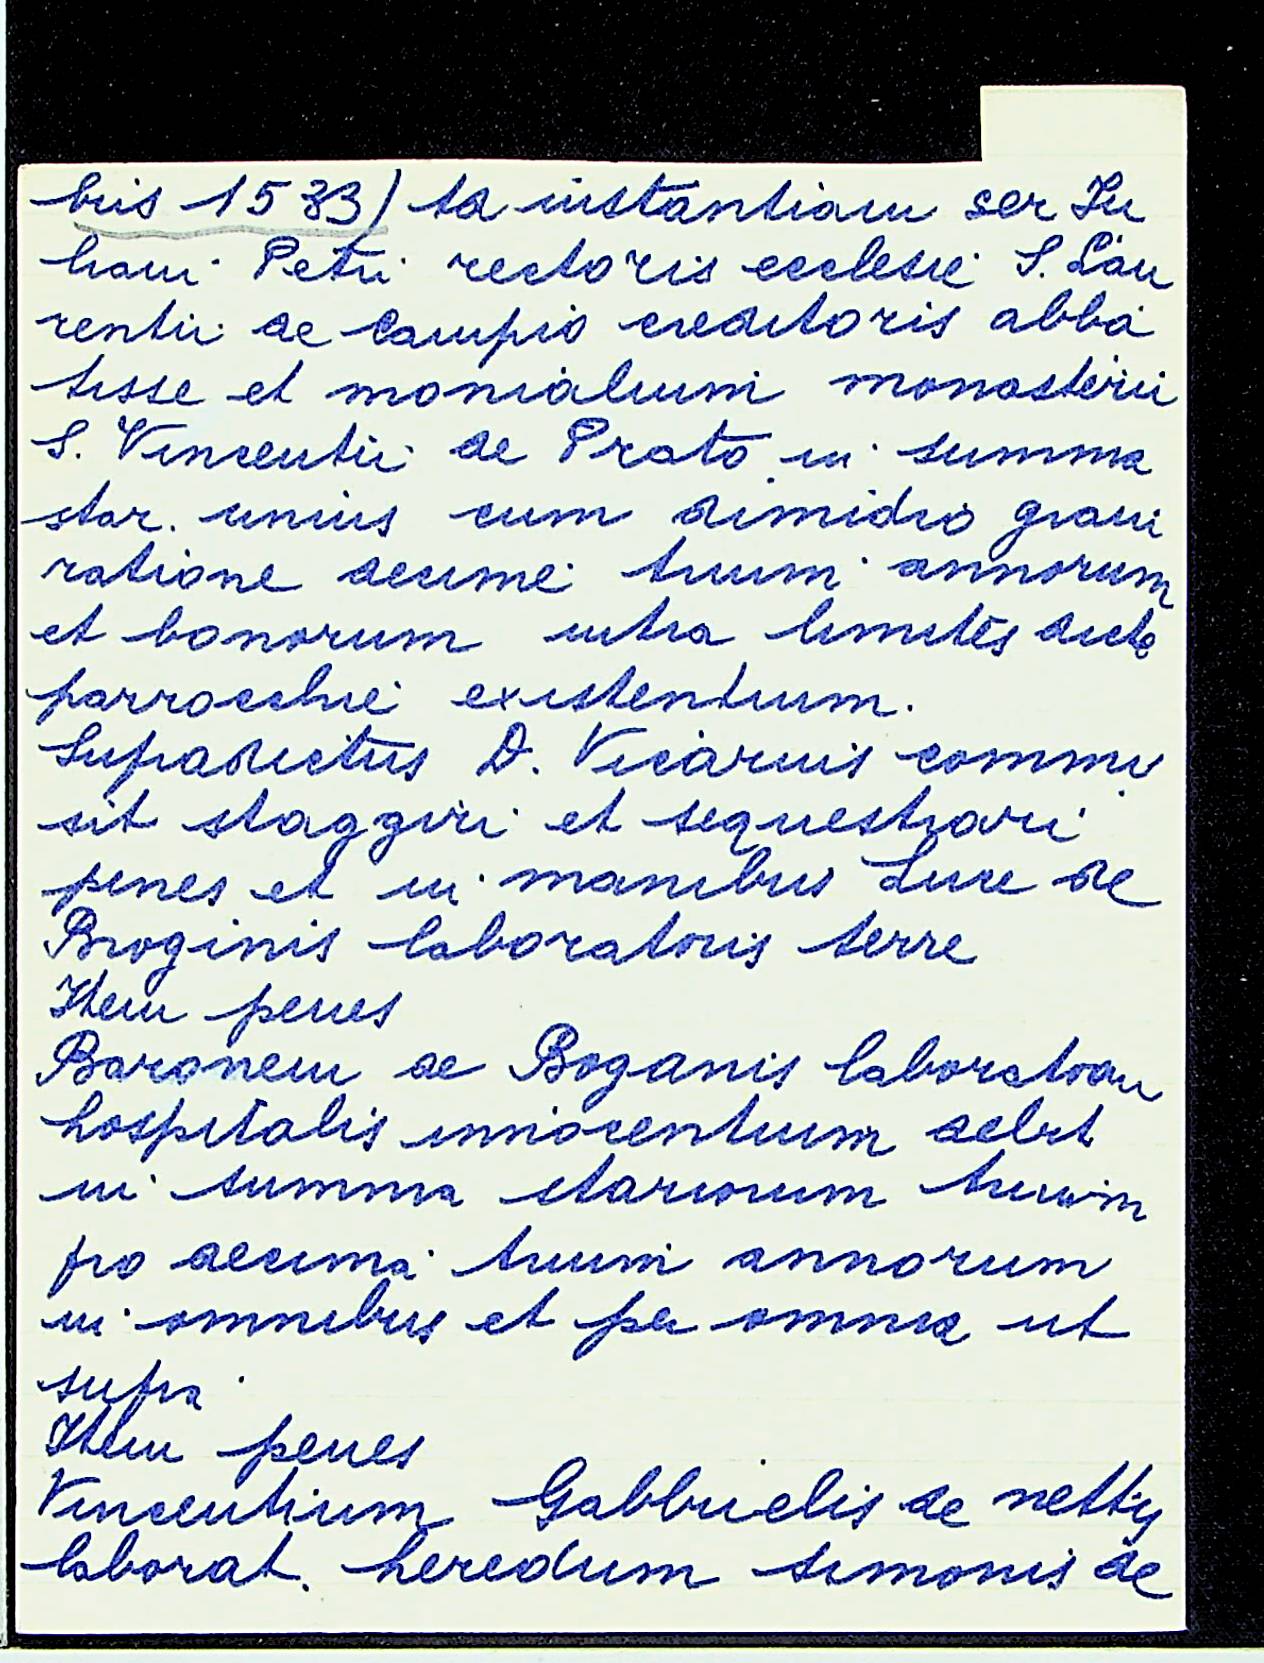 bris 1533) ta instantiam ser Ju
liani Petri rectoris ecclesie S. Lau
rentii de Campio creditoris abba
tisse et monialium monasterii
S. Vincentii de Prato in summa
star. unius cum dimidio grani
ratione decime trium annorum
et bonorum intra limites dicte
parrochie existentium.
Supradictus D. Vicarius commi
sit staggiri et sequestrari
penes et in manibus Luce de
Broginis laboratoris terre
Item penes
Baronem de Boganis laboratorem
hospitalis innocentium debit
in summa stariorum trium
pro decima trium annorum
in omnibus et per omnia ut
supra
Item penes
Vincentium Gabbrielis de nettis
laborat. heredum simonis de